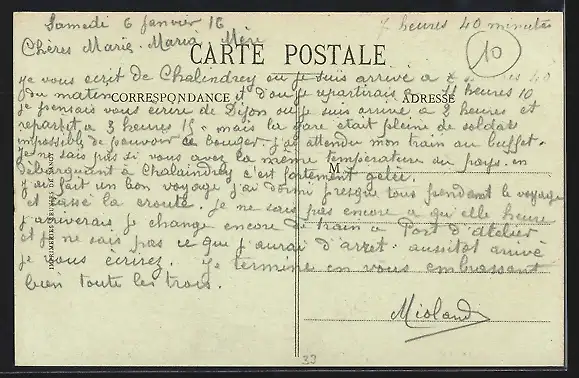 Samedi 6 janvier 16
7 heures 40 minutes
Chères Marie - Maria - Meri
10
CARTE POSTALE
Je vous ecrit de Chalindrey ou je suis arrivé a 7 heures 40
du matin et d'ou je repartirais a 11 heures 10
CORRESPONDANCE
ADRESSE
je pensais vous ecrire de Dijon ou je suis arrivé a 2 heures et
repartit a 3 heures 15 - mais la gare etait pleine de soldats
impossible de pouvoir ce bouger. j'ai attendu mon train au buffet.
je ne sais pas si vous avez la meme température au pays. en
débarquant à Chalaindrey c'est fortement gelée.
M
j'ai fait un bon voyage j'ai dormi presque tous pendant le voyage
et cassé la croute. je ne sais pas encore a qu'elle heure
j'arriverais je change encore de train a Port d'atelier
et je ne sais pas ce que j'aurai d'arret. aussitot arrivé
je vous ecrirez. je termine en vous embrassant
bien toutes les trois.
Mioland
IMPRIMERIES REUNIES DE NANCY
33